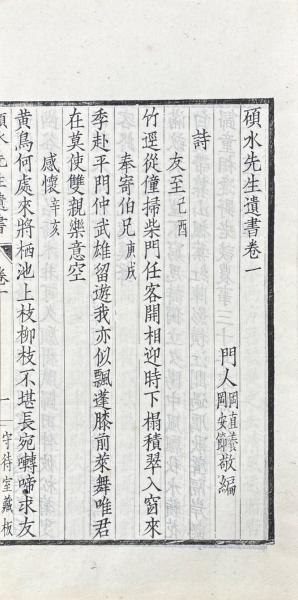 碩水先生遺書卷一
門人岡直養
岡安節敬編
詩
友至己酉
竹逕從僮掃柴門任客開相迎時下榻積翠入窗來
奉寄伯兄庚戌
季赴平門仲武雄留遊我亦似飄蓬膝前萊舞唯君
在莫使雙親樂意空
感懷辛亥
黃鳥何處來將栖池上枝柳枝不堪長宛囀啼求友
碩水先生遺書 卷一 一 守待室藏板